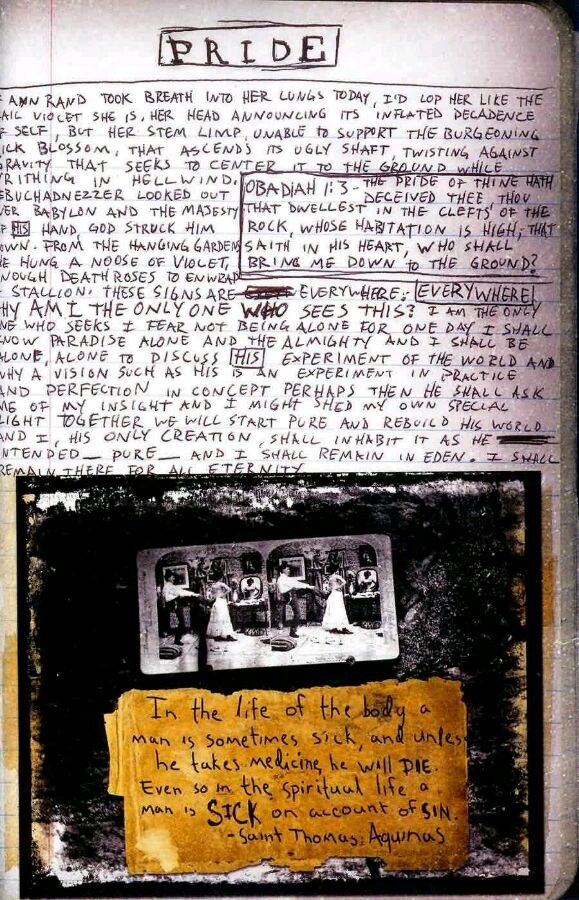 PRIDE
ANN RAND TOOK BREATH INTO HER LUNGS TODAY, I'D LOP HER LIKE THE
AIL VIOLET SHE IS, HER HEAD ANNOUNCING ITS INFLATED DECADENCE
F SELF, BUT HER STEM LIMP, UNABLE TO SUPPORT THE BURGEONING
ICK BLOSSOM, THAT ASCENDS ITS UGLY SHAFT, TWISTING AGAINST
GRAVITY THAT SEEKS TO CENTER IT TO THE GROUND WHILE
RITHING IN HELLWIND.
EBUCHADNEZZER LOOKED OUT
VER BABYLON AND THE MAJESTY
F HIS HAND, GOD STRUCK HIM
OWN. FROM THE HANGING GARDENS
HE HUNG A NOOSE OF VIOLET,
NOUGH DEATH ROSES TO ENWRAP
OBADIAH 1:3 - THE PRIDE OF THINE HATH
DECEIVED THEE, THOU
THAT DWELLEST IN THE CLEFTS OF THE
ROCK, WHOSE HABITATION IS HIGH; THAT
SAITH IN HIS HEART, WHO SHALL
BRING ME DOWN TO THE GROUND?
STALLION. THESE SIGNS ARE EVERYWHERE. EVERYWHERE
HY AM I THE ONLY ONE WHO SEES THIS? I AM THE ONLY
NE WHO SEEKS I FEAR NOT BEING ALONE FOR ONE DAY I SHALL
KNOW PARADISE ALONE AND THE ALMIGHTY AND I SHALL BE
ALONE, ALONE TO DISCUSS HIS EXPERIMENT OF THE WORLD AND
WHY A VISION SUCH AS HIS IS AN EXPERIMENT IN PRACTICE
AND PERFECTION IN CONCEPT PERHAPS THEN HE SHALL ASK
ME OF MY INSIGHT AND I MIGHT SHED MY OWN SPECIAL
LIGHT TOGETHER WE WILL START PURE AND REBUILD HIS WORLD
AND I, HIS ONLY CREATION, SHALL INHABIT IT AS HE
NTENDED — PURE — AND I SHALL REMAIN IN EDEN. I SHALL
REMAIN THERE FOR ALL ETERNITY
In the life of the body a
man is sometimes sick, and unless
he takes medicine, he will DIE.
Even so in the spiritual life a
man is SICK on account of SIN.
- Saint Thomas Aquinas